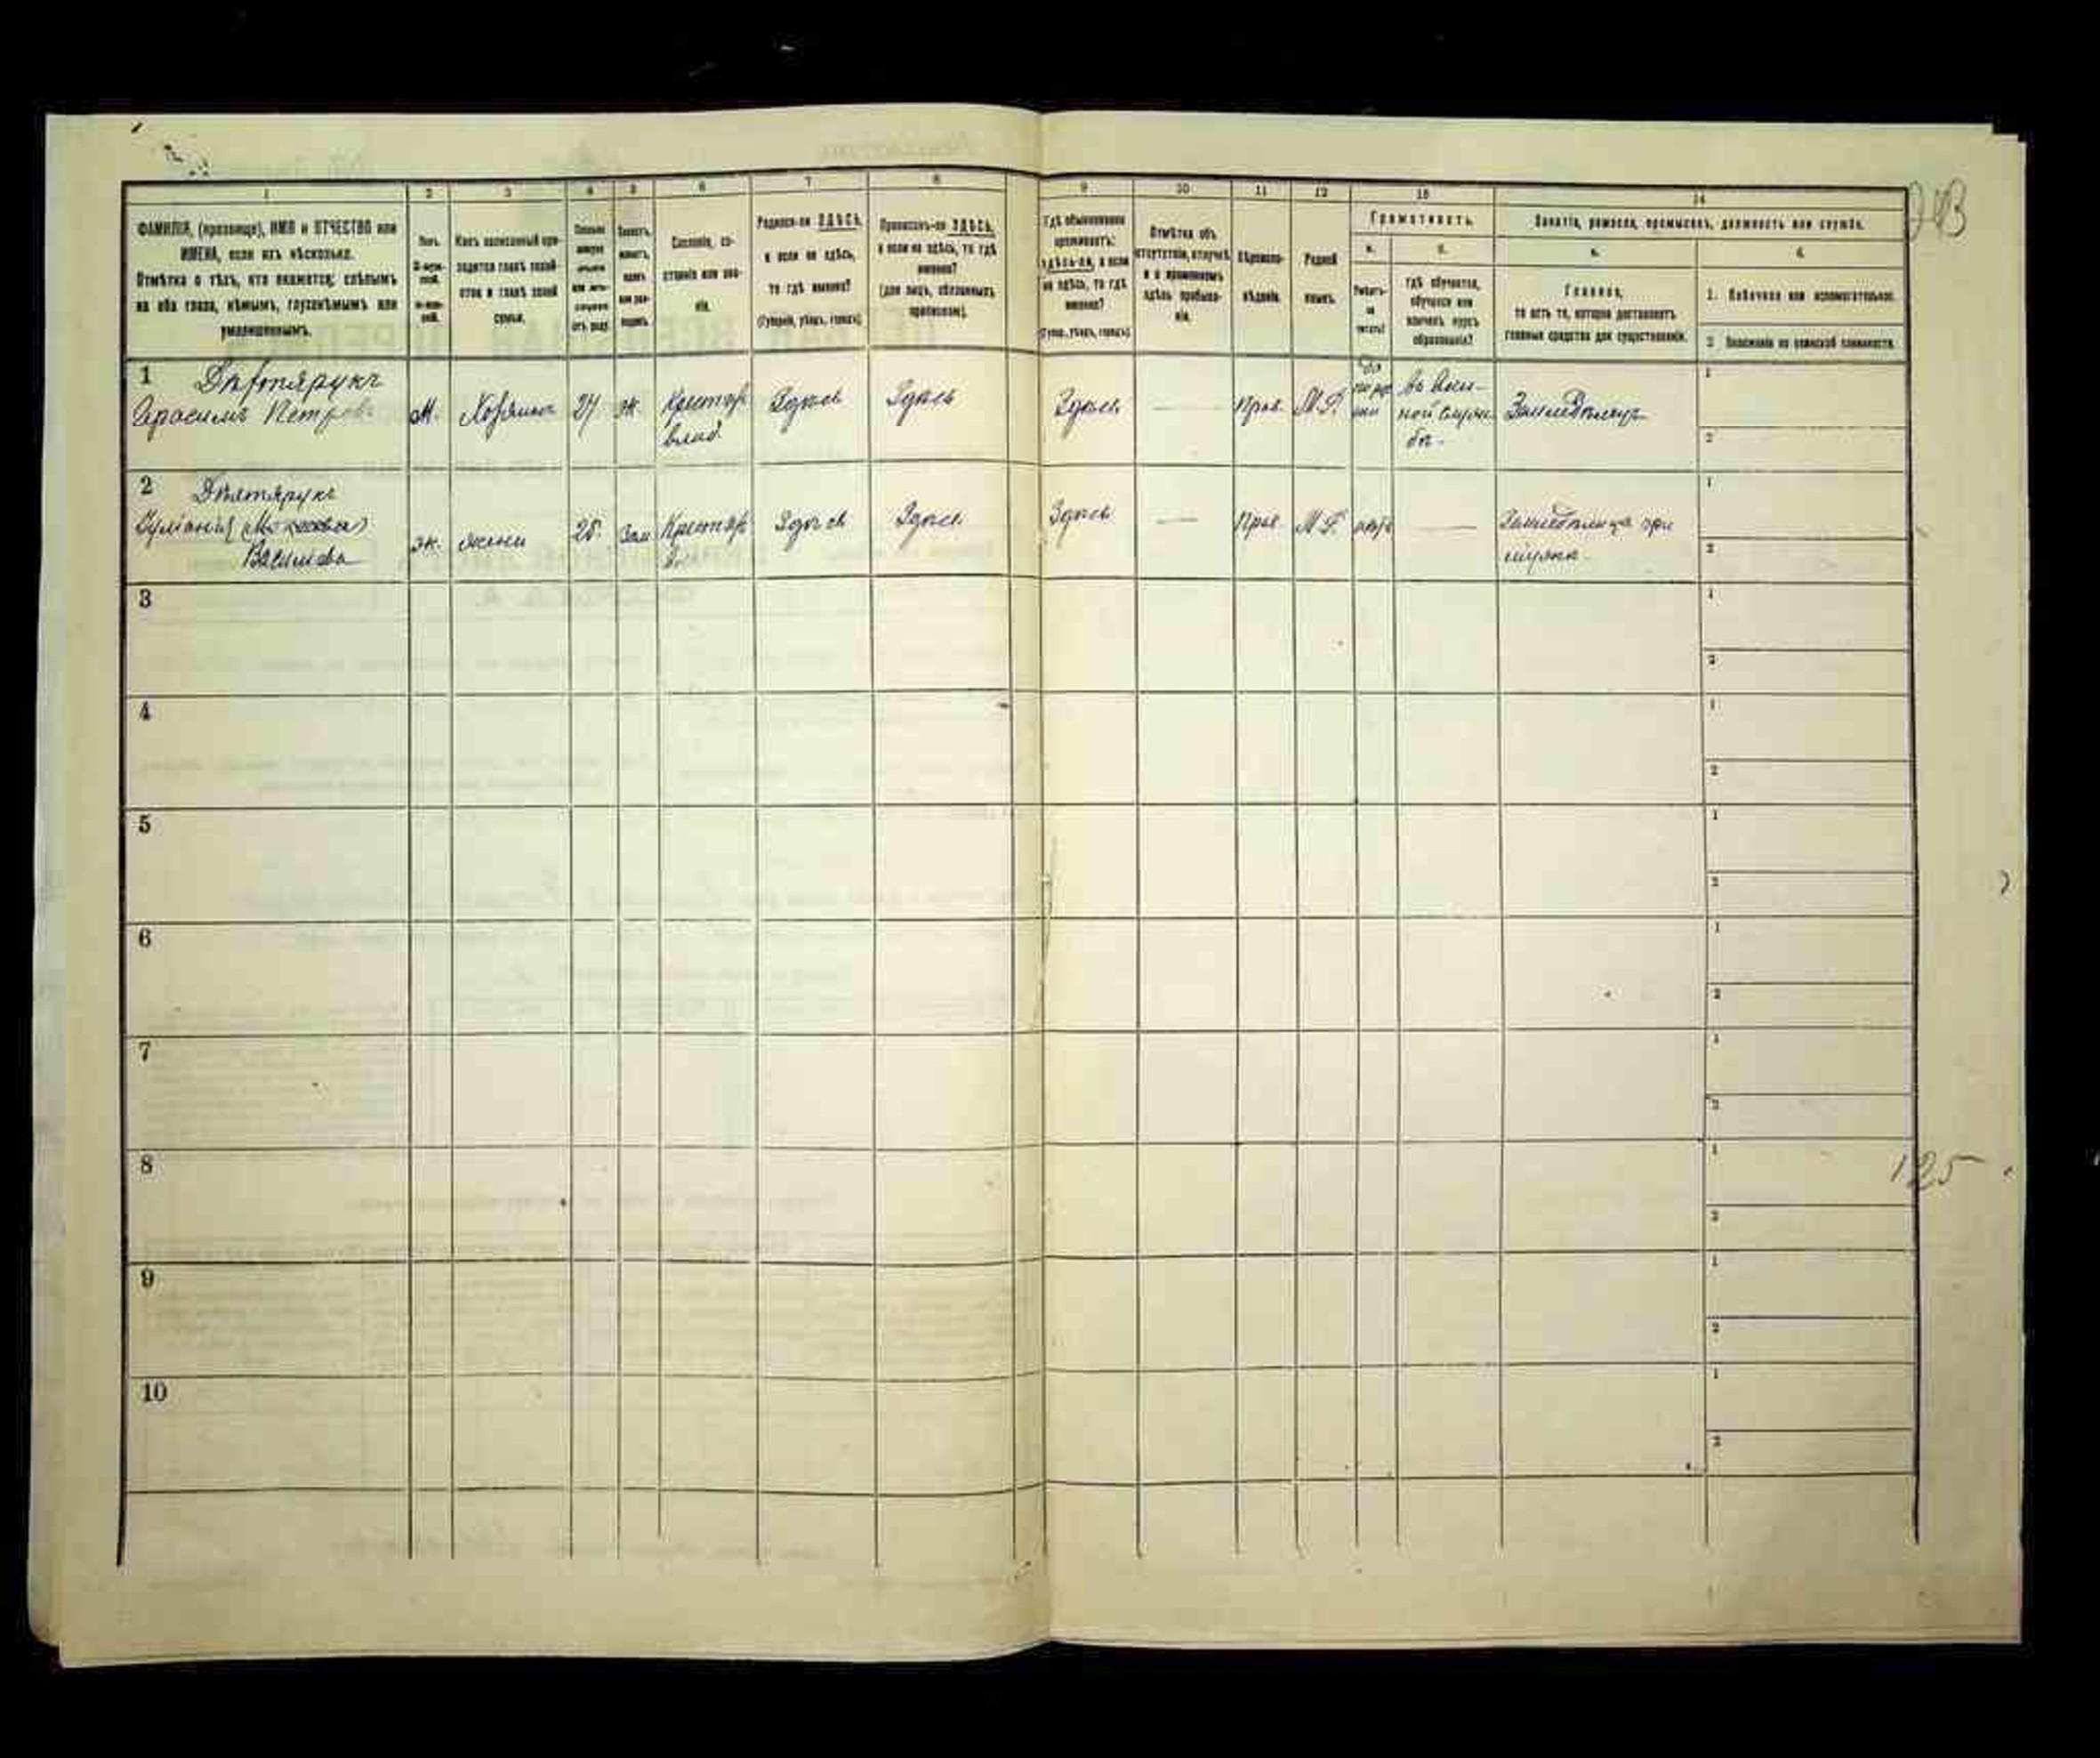 1
2
3
4
5
6
7
8
9
10
11
12
13
14
ФАМИЛІЯ, (прозвище), ИМЯ и ОТЧЕСТВО или
ИМЕНА, если ихъ нѣсколько.
Отмѣтка о тѣхъ, кто окажется; слѣпымъ
на оба глаза, нѣмымъ, глухонѣмымъ или
умалишеннымъ.
Полъ.
Какъ записанный при-
ходится главѣ хозяй-
ства и главѣ своей
семьи.
Сословіе, со-
стояніе или зва-
ніе.
Родился-ли ЗДѢСЬ,
а если не здѣсь,
то гдѣ именно?
(Губернія, уѣздъ, городъ)
Приписанъ-ли ЗДѢСЬ,
а если не здѣсь, то гдѣ
именно?
(для лицъ, обязанныхъ
припискою).
Гдѣ обыкновенно
проживаетъ:
здѣсь-ли, а если
не здѣсь, то гдѣ
именно?
(Губер., уѣздъ, городъ)
Отмѣтка объ
отсутствіи, отлучкѣ
и о временномъ
здѣсь пребыва-
ніи.
Вѣроиспо-
вѣданіе.
Родной
языкъ.
Грамотность.
а.
б.
Умѣетъ-
ли
читать?
гдѣ обучается,
обучался или
кончилъ курсъ
образованія?
Занятіе, ремесло, промыселъ, должность или служба.
а.
Главное,
то есть то, которое доставляетъ
главныя средства для существованія.
б.
1. Побочное или вспомогательное.
2. Положеніе по воинской повинности.
1
Герасимъ Петровъ
М.
Хозяинъ
27
ж.
Крестьян
влад.
Здѣсь
Здѣсь
Здѣсь
Прав.
М.Р.
въ Воен-
ной служ
бѣ.
Земледѣлецъ
1
2
2
Василиева
ж.
жена
25.
Зам.
Здѣсь
Здѣсь
Здѣсь
Прав.
М.Р.
нѣтъ
Земледѣлица при
мужѣ.
1
2
3
1
2
4
1
2
5
1
2
6
1
2
7
1
2
8
1
2
125
9
1
2
10
1
2